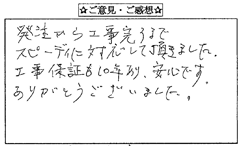 ☆ご意見・ご感想☆
発注から工事完了まで
スピーディに対応して頂きました。
工事保証も10年あり、安心です。
ありがとうございました。